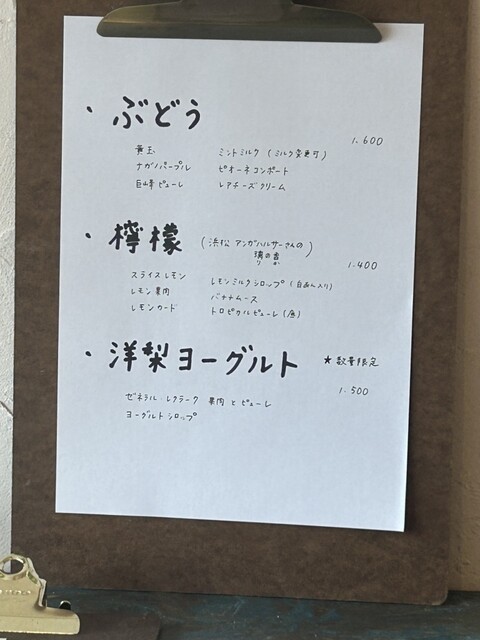 ・ぶどう
1.600
黄玉 ミントミルク (ミルク変更可)
ナガノパープル ピオーネコンポート
巨峰ピューレ レアチーズクリーム
・檸檬 (浜松 アンガハルサーさんの
璃の香)
りのか
1.400
スライスレモン レモンミルクシロップ (白あん入り)
レモン果肉 バナナムース
レモンカード トロピカルピューレ (底)
・洋梨ヨーグルト ★数量限定
1.500
ゼネラル・レクラーク 果肉とピューレ
ヨーグルトシロップ